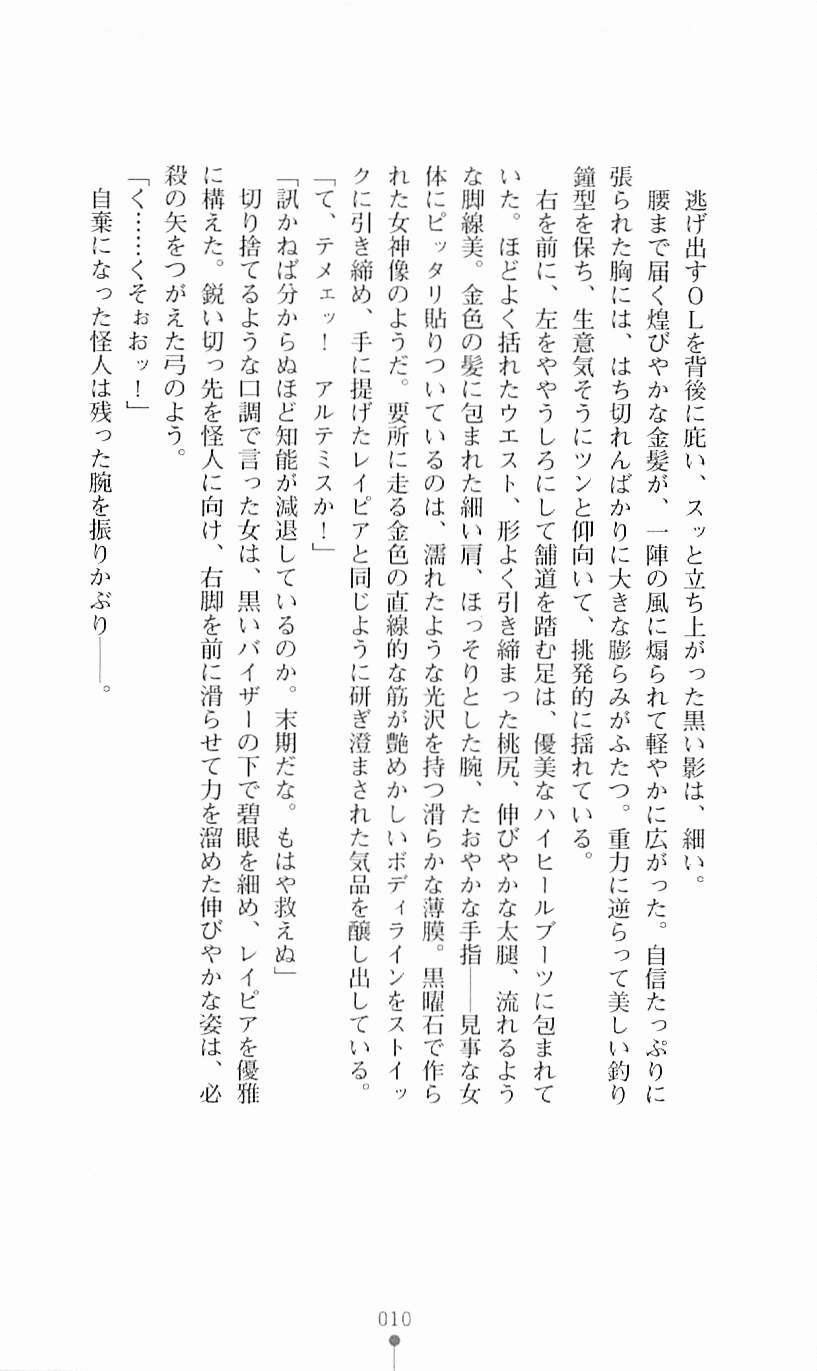 逃げ出すＯＬを背後に庇い、スッと立ち上がった黒い影は、細い。
腰まで届く煌びやかな金髪が、一陣の風に煽られて軽やかに広がった。自信たっぷりに
張られた胸には、はち切れんばかりに大きな膨らみがふたつ。重力に逆らって美しい釣り
鐘型を保ち、生意気そうにツンと仰向いて、挑発的に揺れている。
右を前に、左をややうしろにして舗道を踏む足は、優美なハイヒールブーツに包まれて
いた。ほどよく括れたウエスト、形よく引き締まった桃尻、伸びやかな太腿、流れるよう
な脚線美。金色の髪に包まれた細い肩、ほっそりとした腕、たおやかな手指――見事な女
体にピッタリ貼りついているのは、濡れたような光沢を持つ滑らかな薄膜。黒曜石で作ら
れた女神像のようだ。要所に走る金色の直線的な筋が艶めかしいボディラインをストイッ
クに引き締め、手に提げたレイピアと同じように研ぎ澄まされた気品を醸し出している。
「て、テメェッ！　アルテミスか！」
「訊かねば分からぬほど知能が減退しているのか。末期だな。もはや救えぬ」
切り捨てるような口調で言った女は、黒いバイザーの下で碧眼を細め、レイピアを優雅
に構えた。鋭い切っ先を怪人に向け、右脚を前に滑らせて力を溜めた伸びやかな姿は、必
殺の矢をつがえた弓のよう。
「く……くそぉおッ！」
自棄になった怪人は残った腕を振りかぶり――。
010